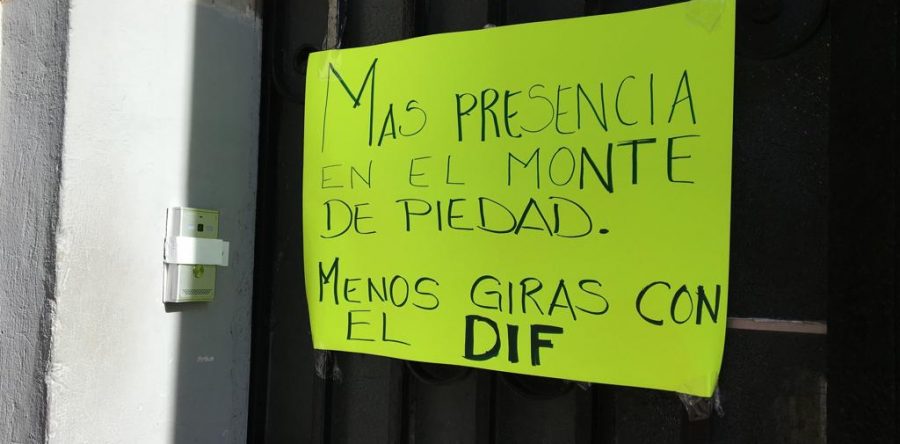 MAS PRESENCIA
EN EL MONTE
DE PIEDAD.
MENOS GIRAS CON
EL DIF